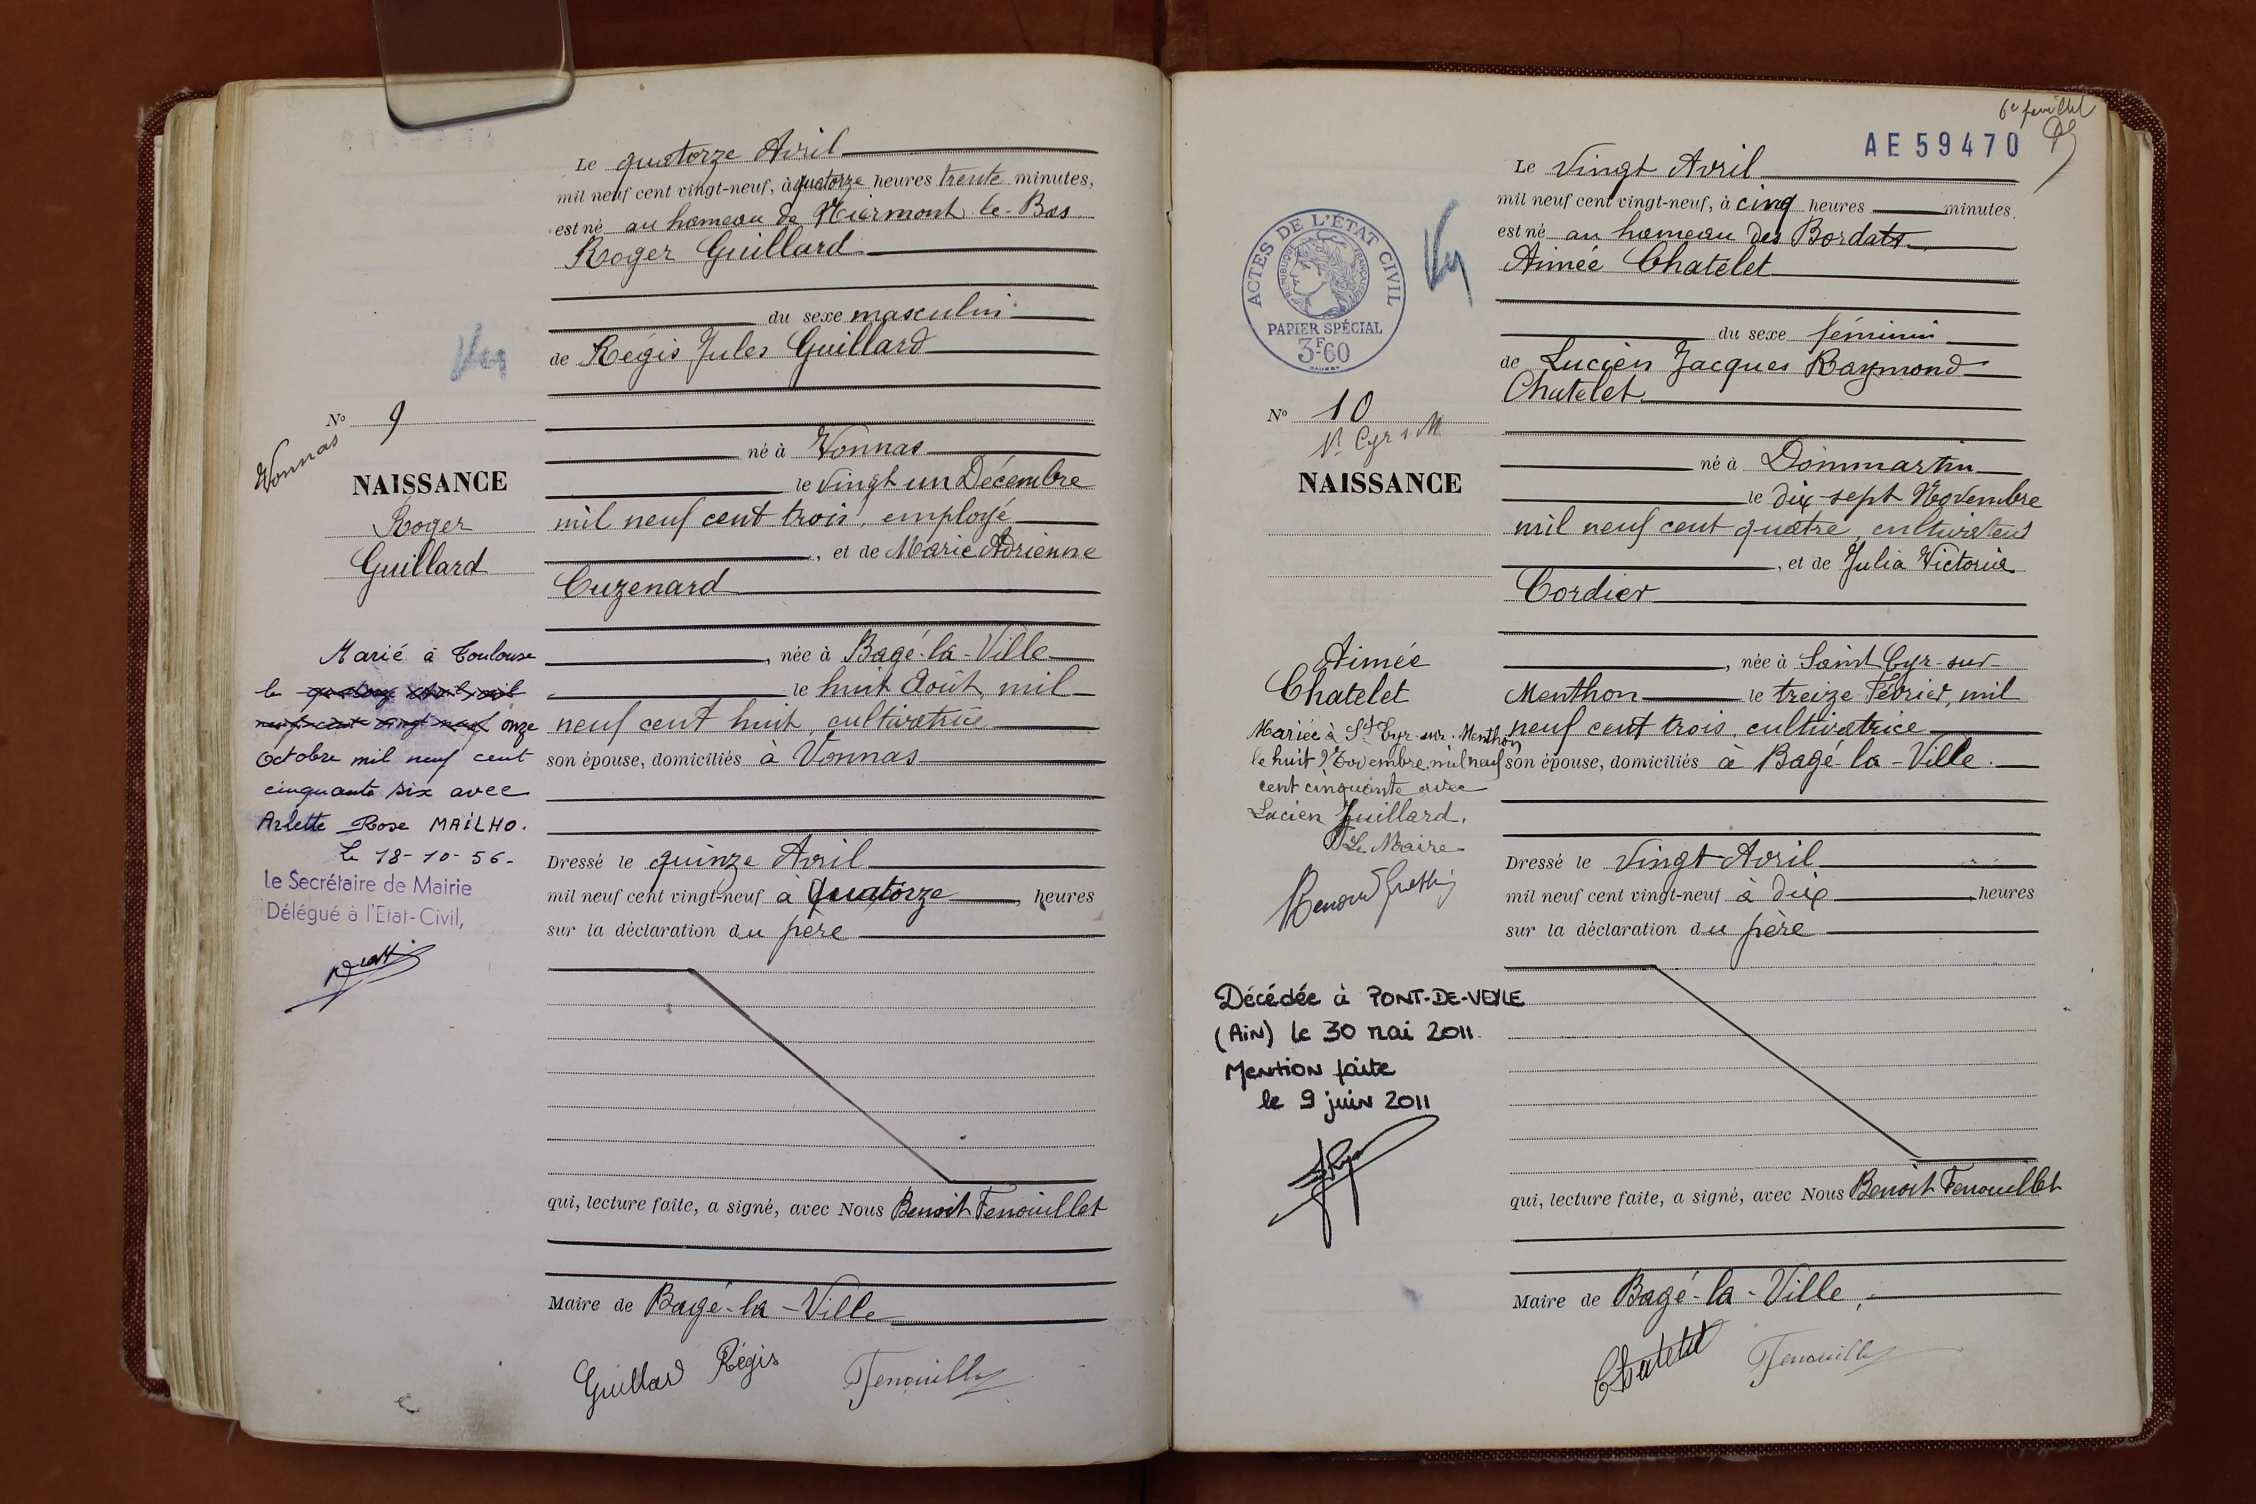 Le quatorze Avril
mil neuf cent vingt-neuf, à quatorze heures trente minutes,
est né au hameau de Niermont-le-Bas
Roger Guillard
du sexe masculin
de Régis Jules Guillard
né à Vonnas
le vingt un Décembre
mil neuf cent trois, employé
, et de Marie Adrienne
Cuzenard
, née à Bagé-la-Ville
le huit Août, mil
neuf cent huit, cultivatrice
son épouse, domiciliés à Vonnas
Dressé le quinze Avril
mil neuf cent vingt-neuf à quatorze, heures
sur la déclaration du père
qui, lecture faite, a signé, avec Nous Benoit Fenouillet
Maire de Bagé-la-Ville
Guillard Régis Fenouillet
Nº 9
Vonnas
NAISSANCE
Roger
Guillard
Marié à Toulouse
le quatorze Avril mil
neuf cent vingt neuf onze
Octobre mil neuf cent
cinquante six avec
Arlette Rose MAILHO.
Le 18-10-56-
Le Secrétaire de Mairie
Délégué à l'Etat-Civil,
6e feuillet
AE 59470
Le vingt Avril
mil neuf cent vingt-neuf, à cinq heures minutes.
est né au hameau des Bordats
Aimée Chatelet
du sexe féminin
de Lucien Jacques Raymond
Chatelet
né à Dommartin
le dix-sept Novembre
mil neuf cent quatre, cultivateur
, et de Julia Victoria
Cordier
, née à Saint Cyr-sur-
Menthon le treize Février, mil
neuf cent trois, cultivatrice
son épouse, domiciliés à Bagé-la-Ville.
Dressé le vingt Avril
mil neuf cent vingt-neuf à dix, heures
sur la déclaration du père
qui, lecture faite, a signé, avec Nous Benoit Fenouillet
Maire de Bagé-la-Ville,
Chatelet Fenouillet
ACTES DE L'ÉTAT CIVIL
RÉPUBLIQUE FRANÇAISE
PAPIER SPÉCIAL
3F60
Nº 10
St Cyr s M
NAISSANCE
Aimée
Chatelet
Mariée à St Cyr-sur-Menthon
le huit Novembre, mil neuf
cent cinquante avec
Lucien Guillard.
Le Maire
Décédée à PONT-DE-VEYLE
(AIN) le 30 mai 2011.
Mention faite
le 9 juin 2011